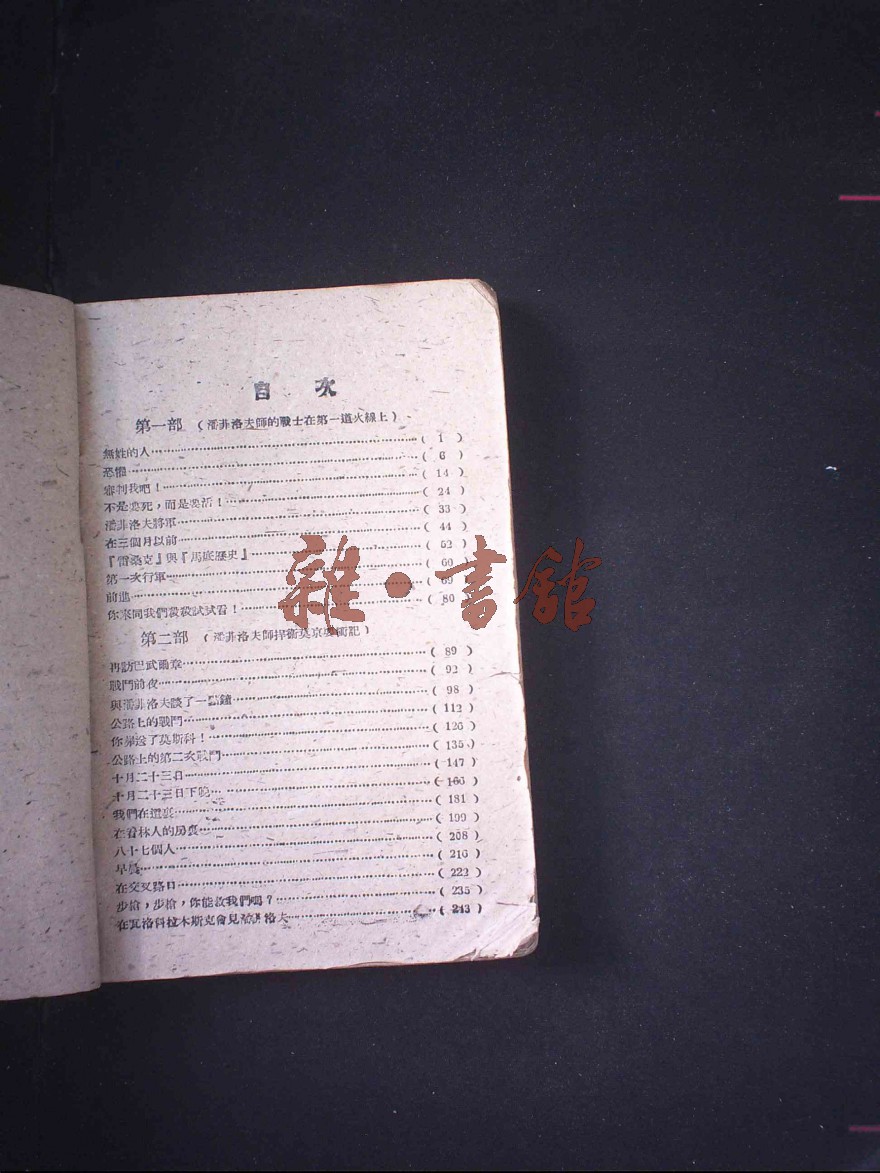 目 次
第一部 (潘菲洛夫師的戰士在第一道火線上)
無姓的人……( 1 )
恐懼……( 6 )
審判我吧!……( 14 )
不是要死,而是要活!……( 24 )
潘菲洛夫將軍……( 33 )
在三個月以前……( 44 )
與『馬底歷史』……( 52 )
第一次行軍……( 60 )
前進……( 69 )
你來同我們殺殺試試看!……( 80 )
雜·書館
第二部 (潘菲洛夫師捍衛莫京要衝記)
再訪巴武爾章……( 89 )
戰鬥前夜……( 92 )
與潘菲洛夫談了一點鐘……( 98 )
公路上的戰鬥……( 112 )
你斷送了莫斯科!……( 126 )
公路上的第二次戰鬥……( 135 )
十月二十三日……( 147 )
十月二十三日下晚……( 166 )
我們在這裏……( 181 )
在看林人的房裏……( 199 )
八十七個人……( 208 )
早晨……( 216 )
在交叉路口……( 222 )
步槍,步槍,你能救我們嗎?……( 235 )
在瓦洛科拉木斯克會見潘菲洛夫……( 243 )